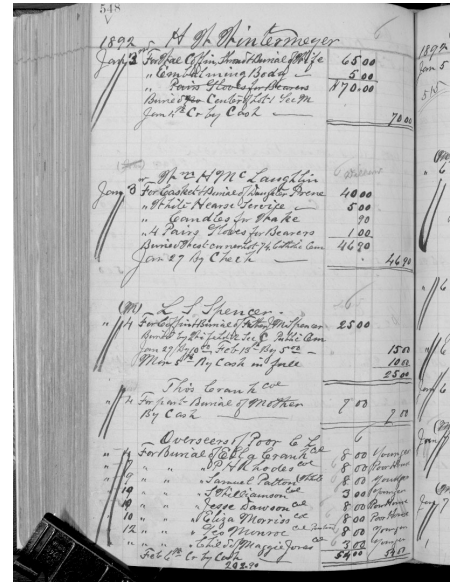 548
1892 H W Wintermeyer
Jany 3 For Wal Coffin & Burial of Wife 65 00
" Embalming Body 5 00
" Pairs Gloves for Bearers $70.00
Buried Center of Lot 1 Sec M
Jan 4th Cr by Cash 70 00
Wm H McLaughlin
Jany 3 For Casket & Burial of Daughter Irene 40 00
" White Hearse Service 5 00
" Candles for Wake 90
" 4 Pairs Gloves for Bearers 1.00
Buried West on Catholic Cem 46 90
Jan 27 By Check 46 90
L. S. Spencer
" 4 For Coffin & Burial of Father M Spencer 25 00
Buried by Sec C Public Cem
Jan 29 By 10 00 Feb 13th By 5 00
Mar 5th By Cash in full
15 00
10 00
25 00
Thos Crank col
" 4 For part Burial of Mother 7 00
By Cash 7 00
Overseers of Poor C L
" 4 For Burial of Eliza Crank col 8 00 Younger
" 7 " " P H Rhodes col 8 00 Poor House
" 9 " " Samuel Patton 8 00 Younger
" 10 " " S Williamson col 3 00 Younger
" 10 " " Jesse Dawson col 8 00 Poor House
" 10 " " Eliza Morris col 8 00 Poor House
" 12 " " Geo Monroe col 8 00 Younger
" " " " Child of Maggie Jones col 3 00 Younger
Feb 6th Cr by Cash 54 00 54 00
202.90